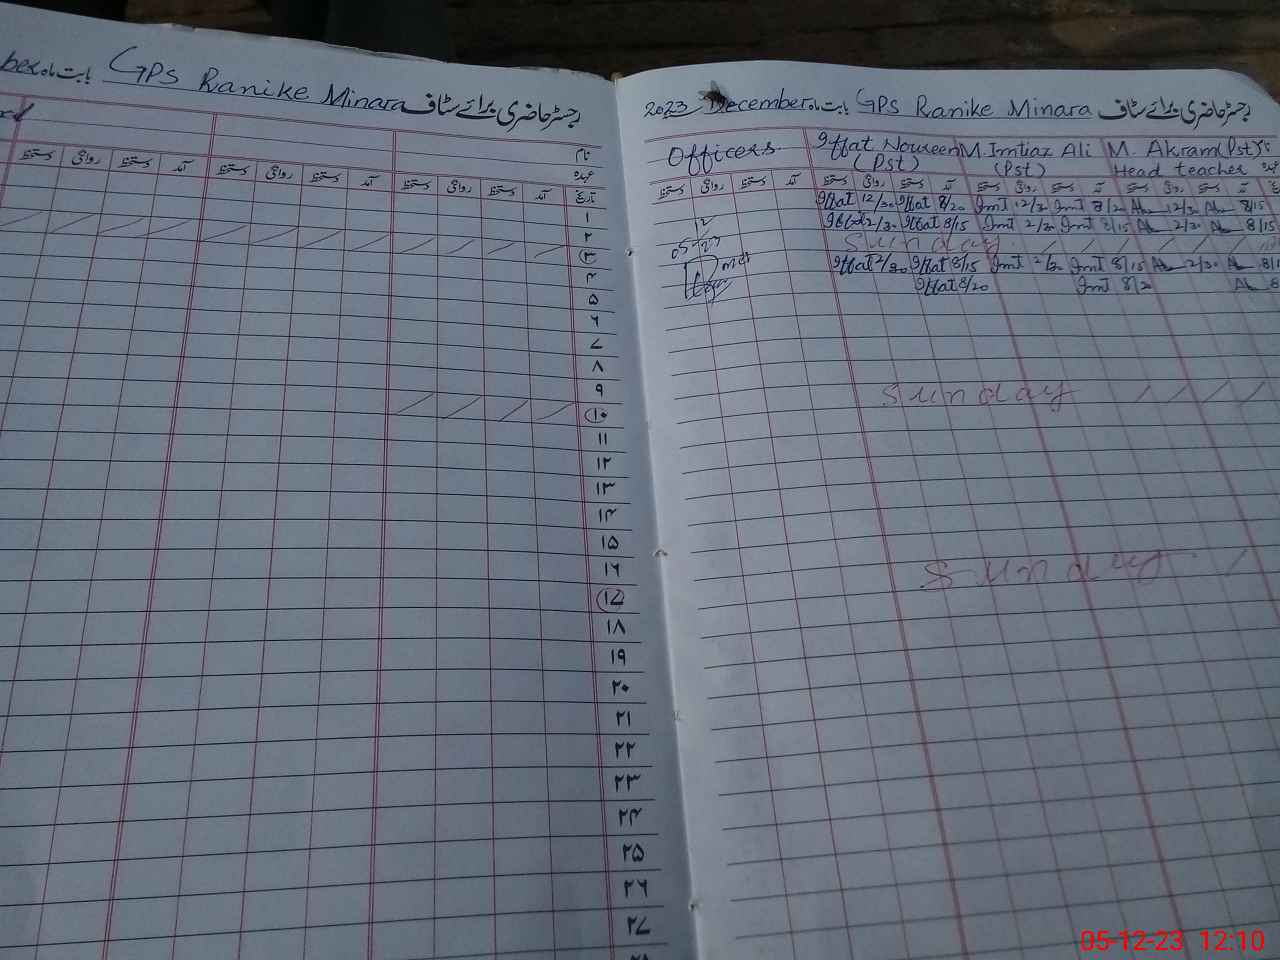 ber بابت ماہ GPS Ranike Minara رجسٹر حاضری برائے سٹاف
نام
عہدہ
دستخط روانگی دستخط آمد دستخط روانگی دستخط آمد دستخط روانگی دستخط آمد تاریخ
۱
۲
۳
۴
۵
۶
۷
۸
۹
۱۰
۱۱
۱۲
۱۳
۱۴
۱۵
۱۶
۱۷
۱۸
۱۹
۲۰
۲۱
۲۲
۲۳
۲۴
۲۵
۲۶
۲۷
۲۸
2023 December بابت ماہ GPS Ranike Minara رجسٹر حاضری برائے سٹاف
Officers. Iffat Noureen M. Imtiaz Ali M. Akram (Pst)
(Pst) (Pst) Head teacher
دستخط روانگی دستخط آمد دستخط روانگی دستخط آمد دستخط روانگی دستخط آمد دستخط روانگی دستخط آمد
Iffat 12/30 Iffat 8/20 Imt 12/3 Imt 8/20 12/30 8/15
Iffat 2/30 Iffat 8/15 Imt 2/30 Imt 8/15 2/30 8/15
Sunday
Iffat 2/30 Iffat 8/15 Imt 2/30 Imt 8/15 2/30 8/1
Iffat 8/20 Imt 8/2 8
Sunday
Sunday
05-12-23 12:10